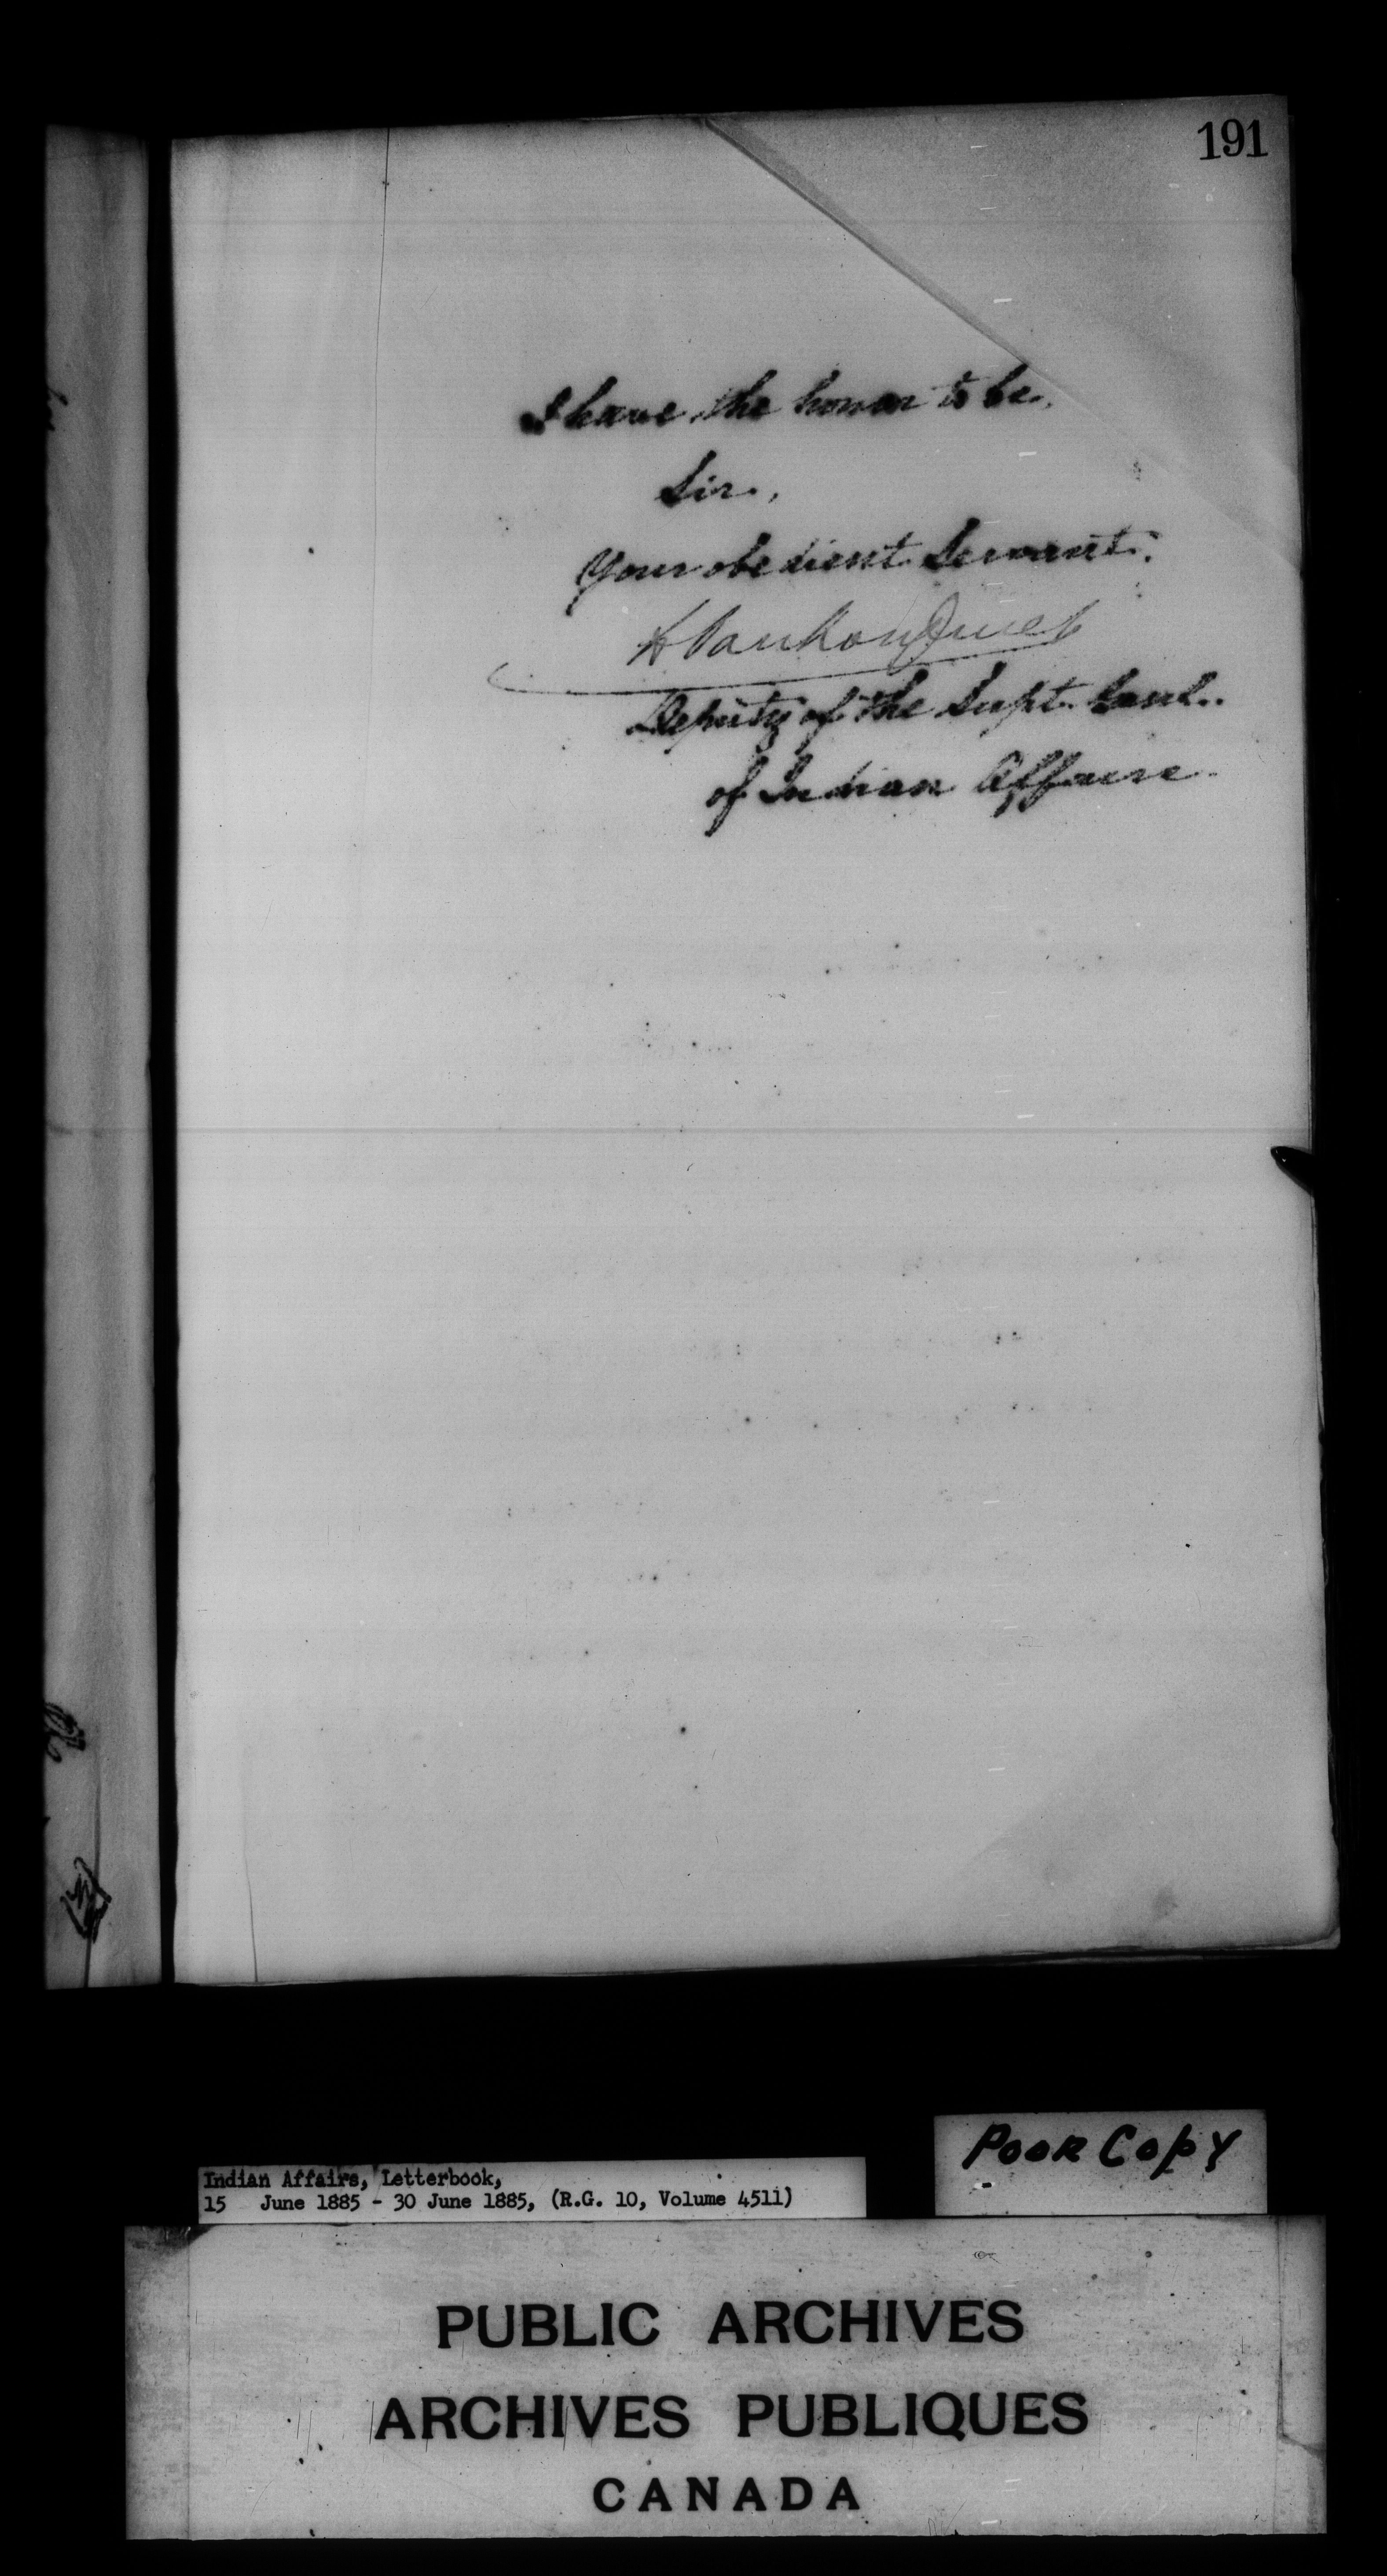 191
I have the honor to be,
Sir,
Your obedient Servant,
L VanKoughnet
Deputy of the Supt. Genl.
of Indian Affairs.
Poor Copy
Indian Affairs, Letterbook,
15 June 1885 - 30 June 1885, (R.G. 10, Volume 4511)
PUBLIC ARCHIVES
ARCHIVES PUBLIQUES
CANADA